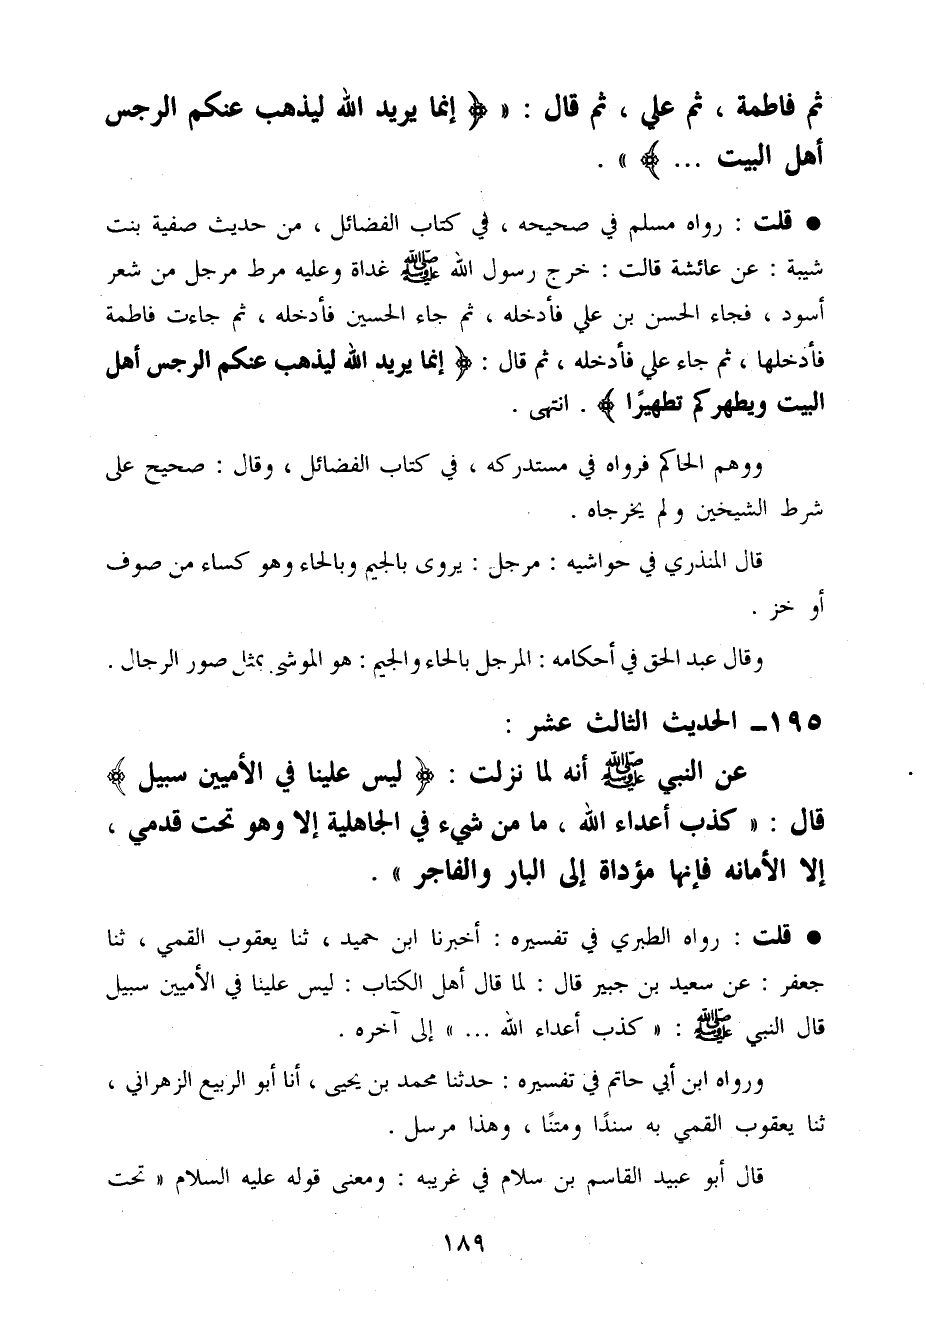 ثم فاطمة ، ثم علي ، ثم قال : « ﴿ إنما يريد الله ليذهب عنكم الرجس
أهل البيت ... ﴾ » .
● قلت : رواه مسلم في صحيحه ، في كتاب الفضائل ، من حديث صفية بنت
شيبة : عن عائشة قالت : خرج رسول الله ﷺ غداة وعليه مرط مرجل من شعر
أسود ، فجاء الحسن بن علي فأدخله ، ثم جاء الحسين فأدخله ، ثم جاءت فاطمة
فأدخلها ، ثم جاء علي فأدخله ، ثم قال : ﴿ إنما يريد الله ليذهب عنكم الرجس أهل
البيت ويطهركم تطهيرًا ﴾ . انتهى .
ووهم الحاكم فرواه في مستدركه ، في كتاب الفضائل ، وقال : صحيح على
شرط الشيخين ولم يخرجاه .
قال المنذري في حواشيه : مرجل : يروى بالجيم وبالحاء وهو كساء من صوف
أو خز .
وقال عبد الحق في أحكامه : المرجل بالحاء والجيم : هو الموشى بمثل صور الرجال .
١٩٥ـ الحديث الثالث عشر :
عن النبي ﷺ أنه لما نزلت : ﴿ ليس علينا في الأميين سبيل ﴾
قال : « كذب أعداء الله ، ما من شيء في الجاهلية إلا وهو تحت قدمي ،
إلا الأمانه فإنها مؤداة إلى البار والفاجر » .
● قلت : رواه الطبري في تفسيره : أخبرنا ابن حميد ، ثنا يعقوب القمي ، ثنا
جعفر : عن سعيد بن جبير قال : لما قال أهل الكتاب : ليس علينا في الأميين سبيل
قال النبي ﷺ : « كذب أعداء الله ... » إلى آخره .
ورواه ابن أبي حاتم في تفسيره : حدثنا محمد بن يحيى ، أنا أبو الربيع الزهراني ،
ثنا يعقوب القمي به سندًا ومتنًا ، وهذا مرسل .
قال أبو عبيد القاسم بن سلام في غريبه : ومعنى قوله عليه السلام « تحت
١٨٩